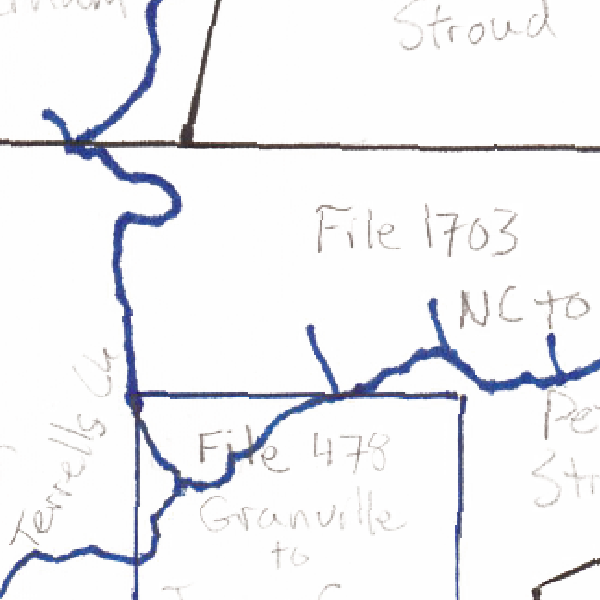 Stroud
File 1703
NC to
Terrells Ck
File 478
Granville
to